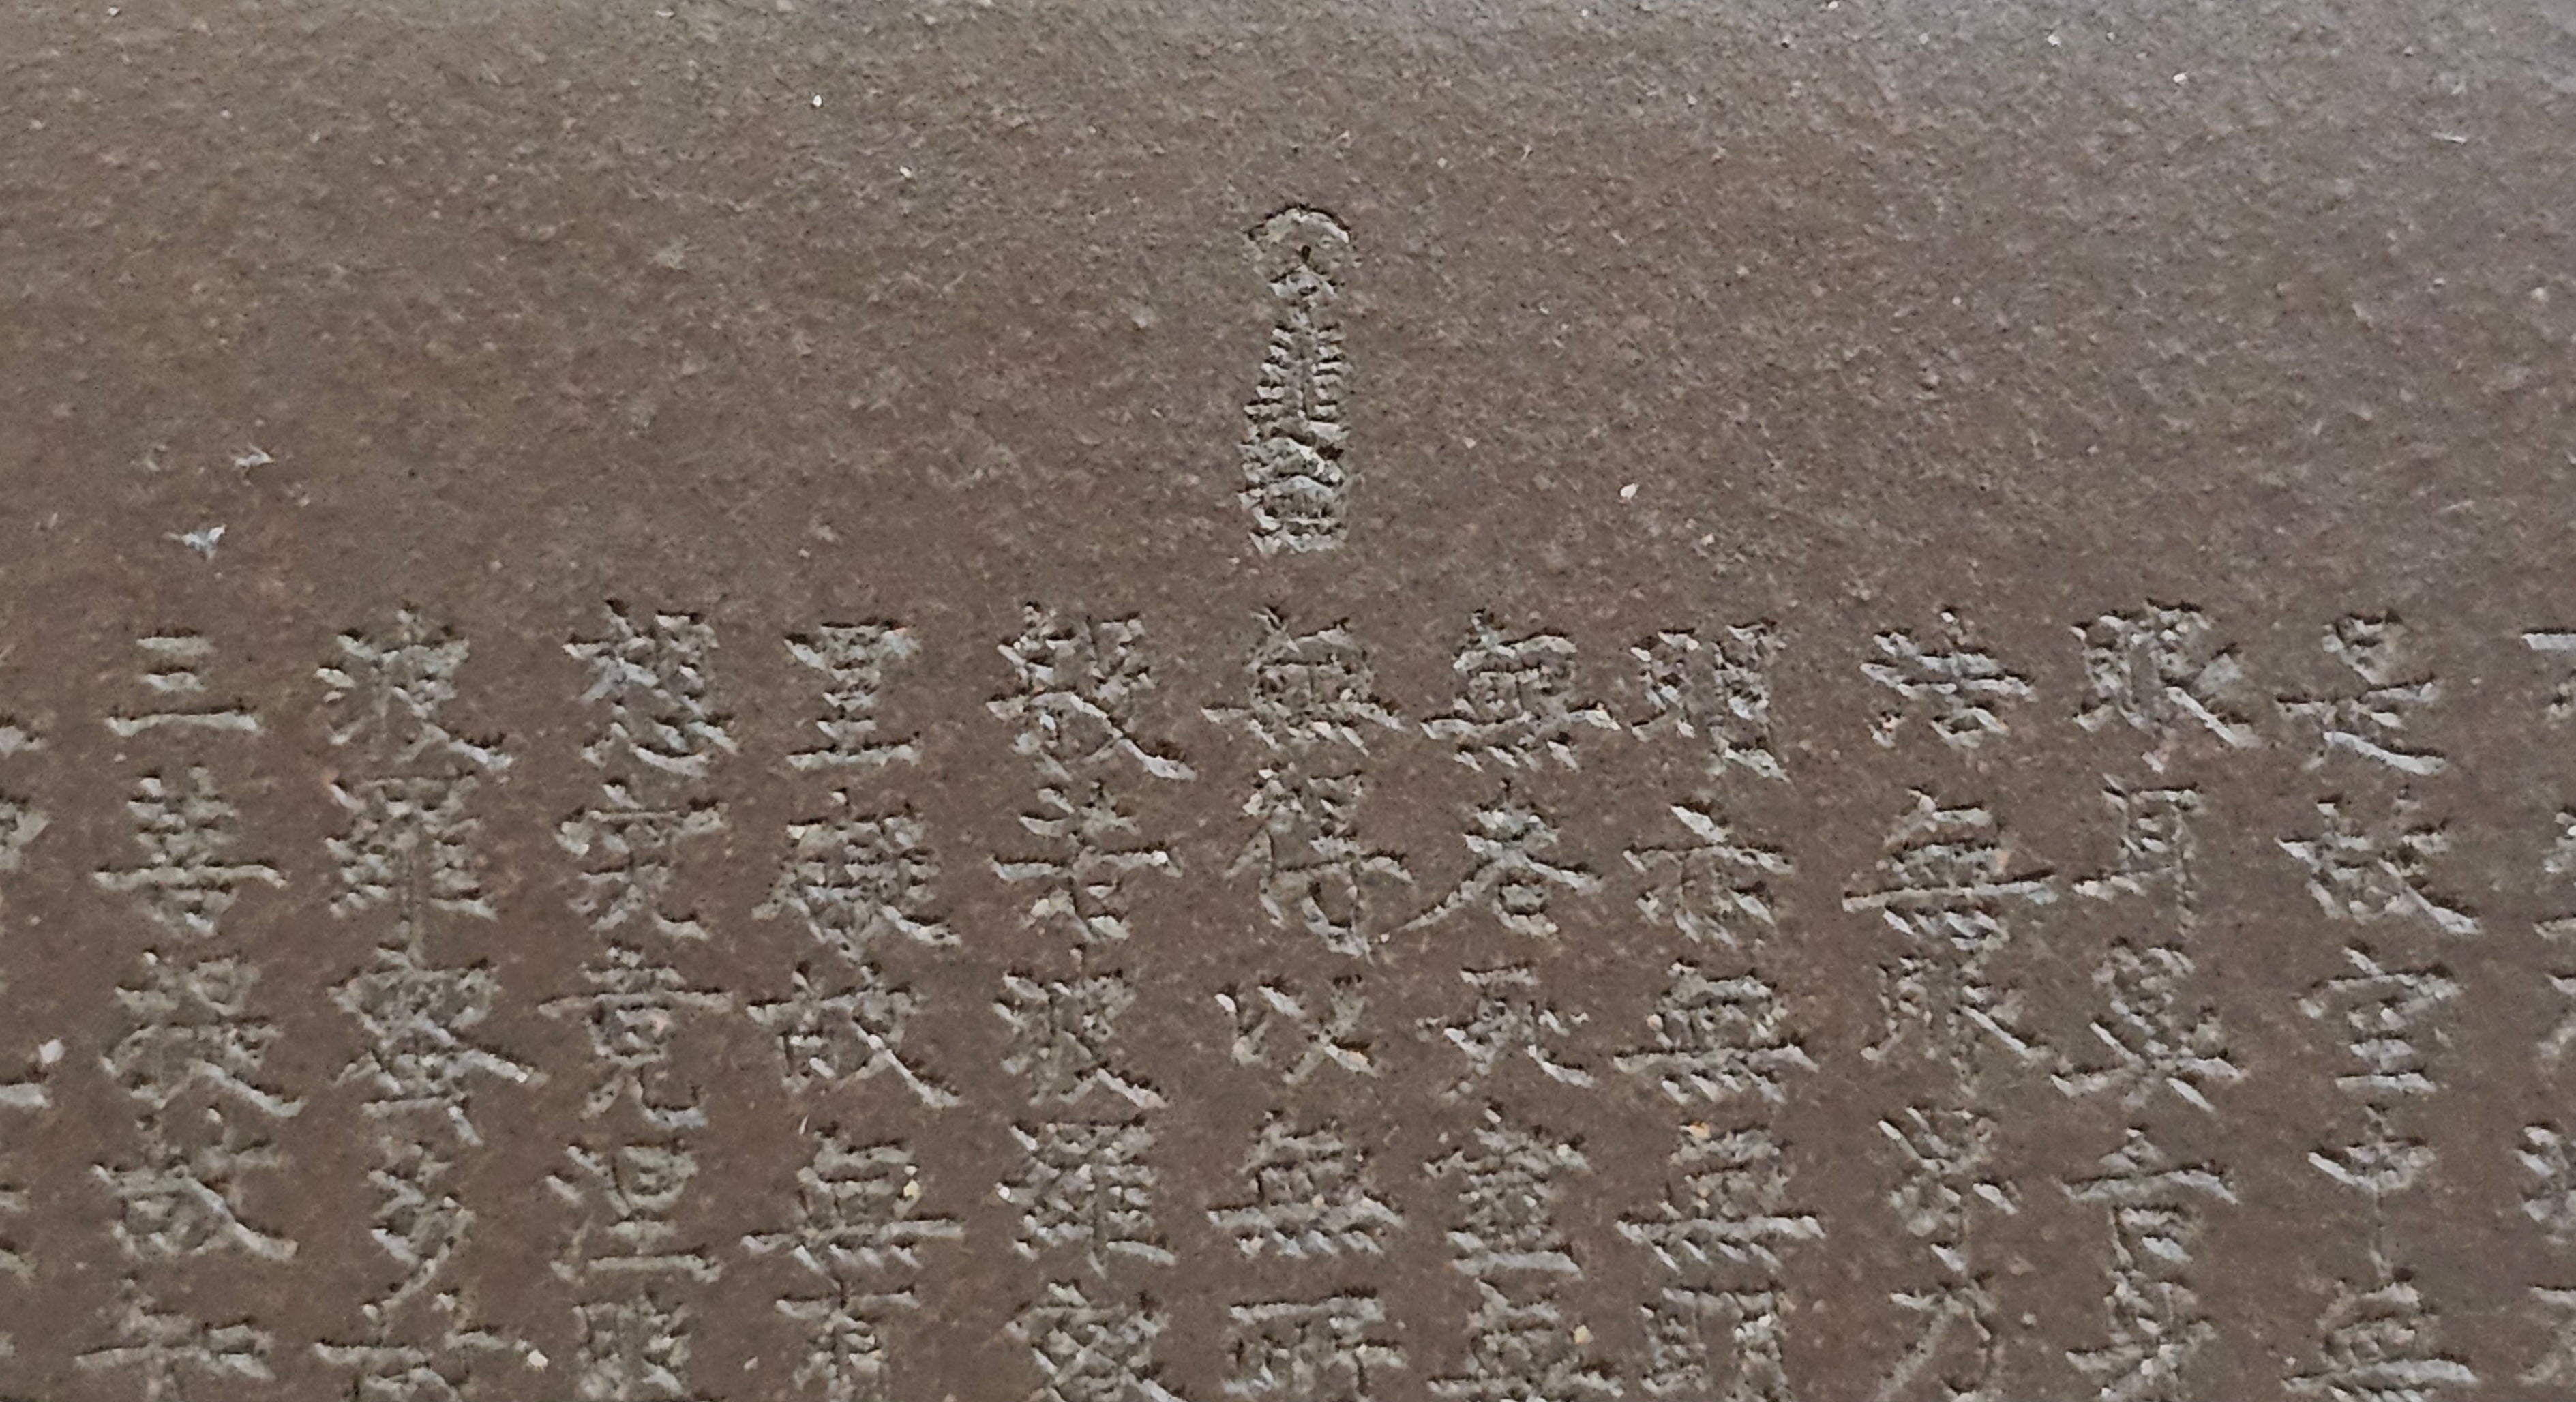 是故空中無
眼耳鼻舌身
法無眼界乃
明亦無無明
無老死盡無
無得以無所
般若波羅蜜
罣礙故無有
想究竟涅槃
波羅蜜多故
三菩提故知